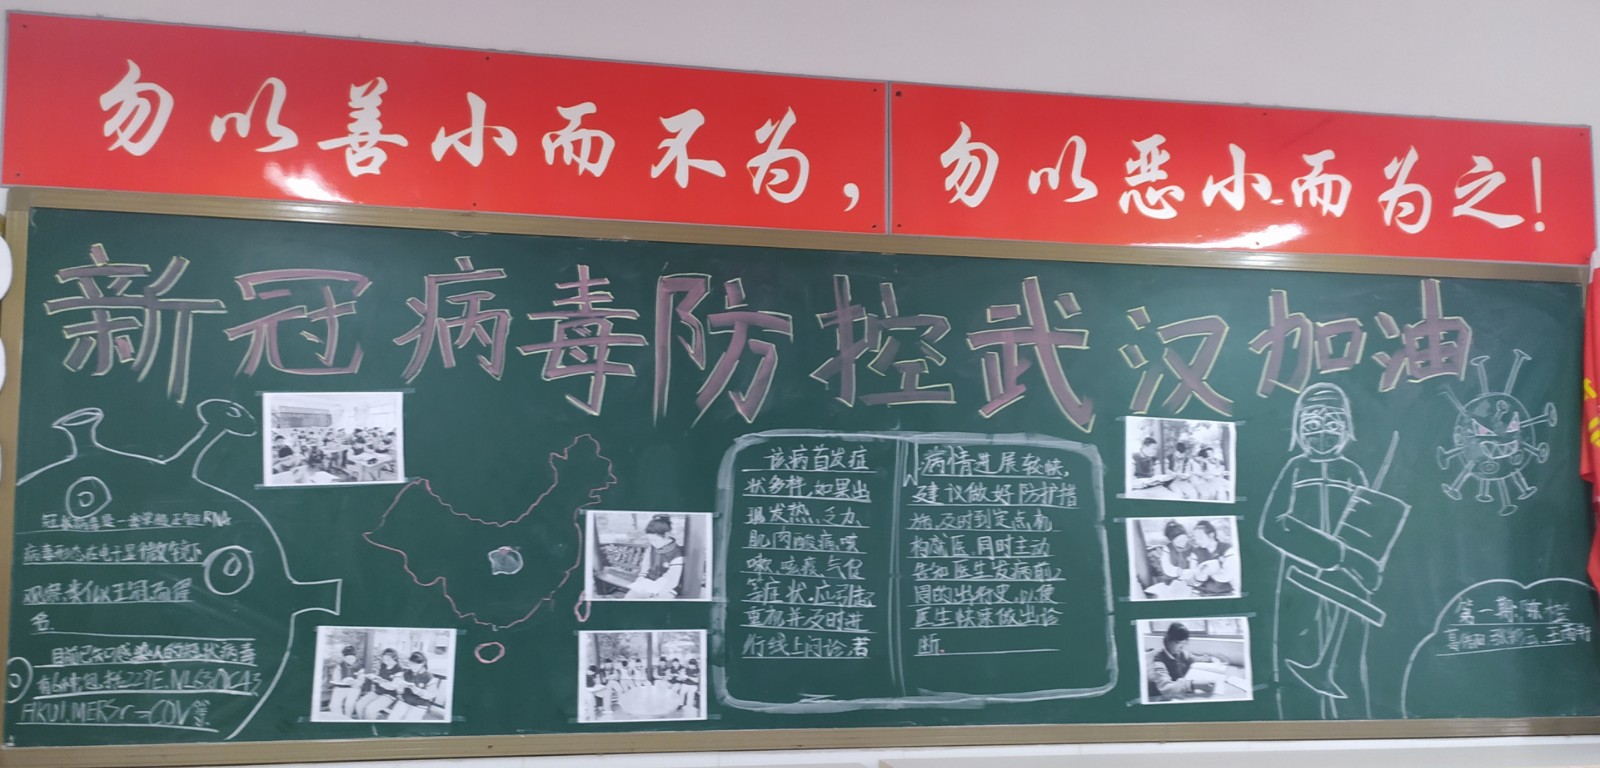 勿以善小而不为，勿以恶小而为之！
新冠病毒防控武汉加油
冠状病毒是一类单链正链RNA
病毒形态在电子显微镜下
观察类似王冠而得
名.
目前已知感染人的冠状病毒
有6种,包括229E.NL63.OC43
HKU1.MERSr-COV等
该病首发症
状多样,如果出
现发热、乏力、
肌肉酸痛、咳
嗽、咳痰、气促
等症状.应引起
重视并及时进
行线上问诊,若
病情进展较快,
建议做好防护措
施,及时到定点机
构就医,同时主动
告知医生发病前2
周的出行史,以便
医生快速做出诊
断.
第一期:陈